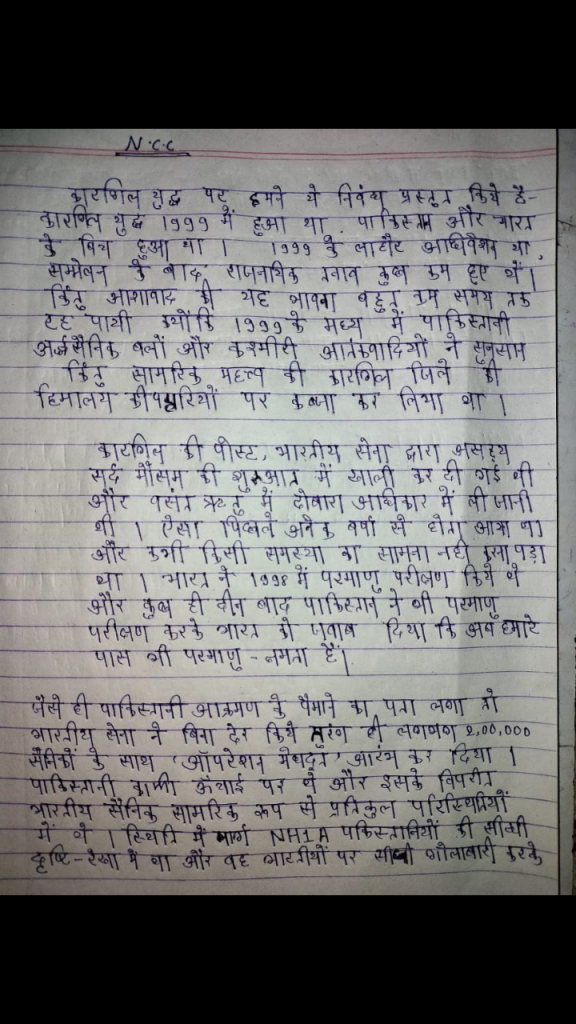 N.C.C
कारगिल युद्ध पर हमने ये निबंध प्रस्तुत किये है-
कारगिल युद्ध 1999 में हुआ था. पाकिस्तान और भारत
के बिच हुआ था । 1999 के लाहौर आधिवेशन या
सम्मेलन के बाद, राजनयिक तनाव कुछ कम हुए थे।
किंतु आशावाद की यह भावना बहुत कम समय तक
रह पायी क्योंकि 1999 के मध्य में पाकिस्तानी
अर्द्धसैनिक बलों और कश्मीरी आतंकवादियों ने सुनसान
किंतु सामरिक महत्व की कारगिल जिले की
हिमालय की पहारियों पर कब्जा कर लिया था ।
कारगिल की पोस्ट, भारतीय सेना द्वारा असहय
सर्द मौसम की शुरुआत में खाली कर दी गई थी
और वसंत ऋतु में दोबारा आधिकार में ली जानी
थी । ऐसा पिछले अनेक वर्षा से होता आया था
और कभी किसी समस्या का सामना नही करना पड़ा
था । भारत ने 1998 में परमाणु परीक्षण किये थे
और कुछ ही दीन बाद पाकिस्तान ने भी परमाणु
परीक्षण करके भारत को जवाब दिया कि अब हमारे
पास भी परमाणु - क्षमता हैं।
जैसे ही पाकिस्तानी आक्रमण के पैमाने का पता लगा तो
भारतीय सेना ने बिना देर किये तुरंत ही लगभग 2,00,000
सैनिकों के साथ 'ऑपरेशन मेघदूत' आरंभ कर दिया ।
पाकिस्तानी काफी ऊँचाई पर थे और इसके विपरीत
भारतीय सैनिक सामरिक रूप से प्रतिकुल परिस्थितियों
में थे । स्थिति में मार्ग NH1A पकिस्तानियों की सीधी
दृष्टि-रेखा में था और वह भारतीयों पर सीधी गोलाबारी करके